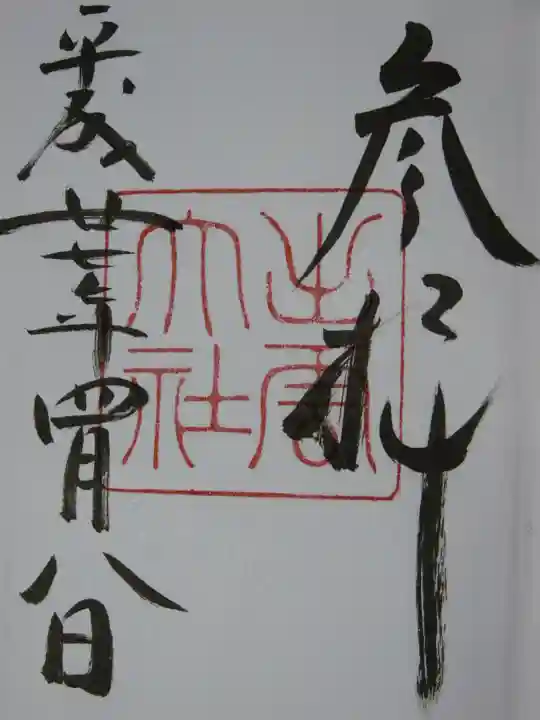 参拝
出雲
大社
平成廿七年四月八日